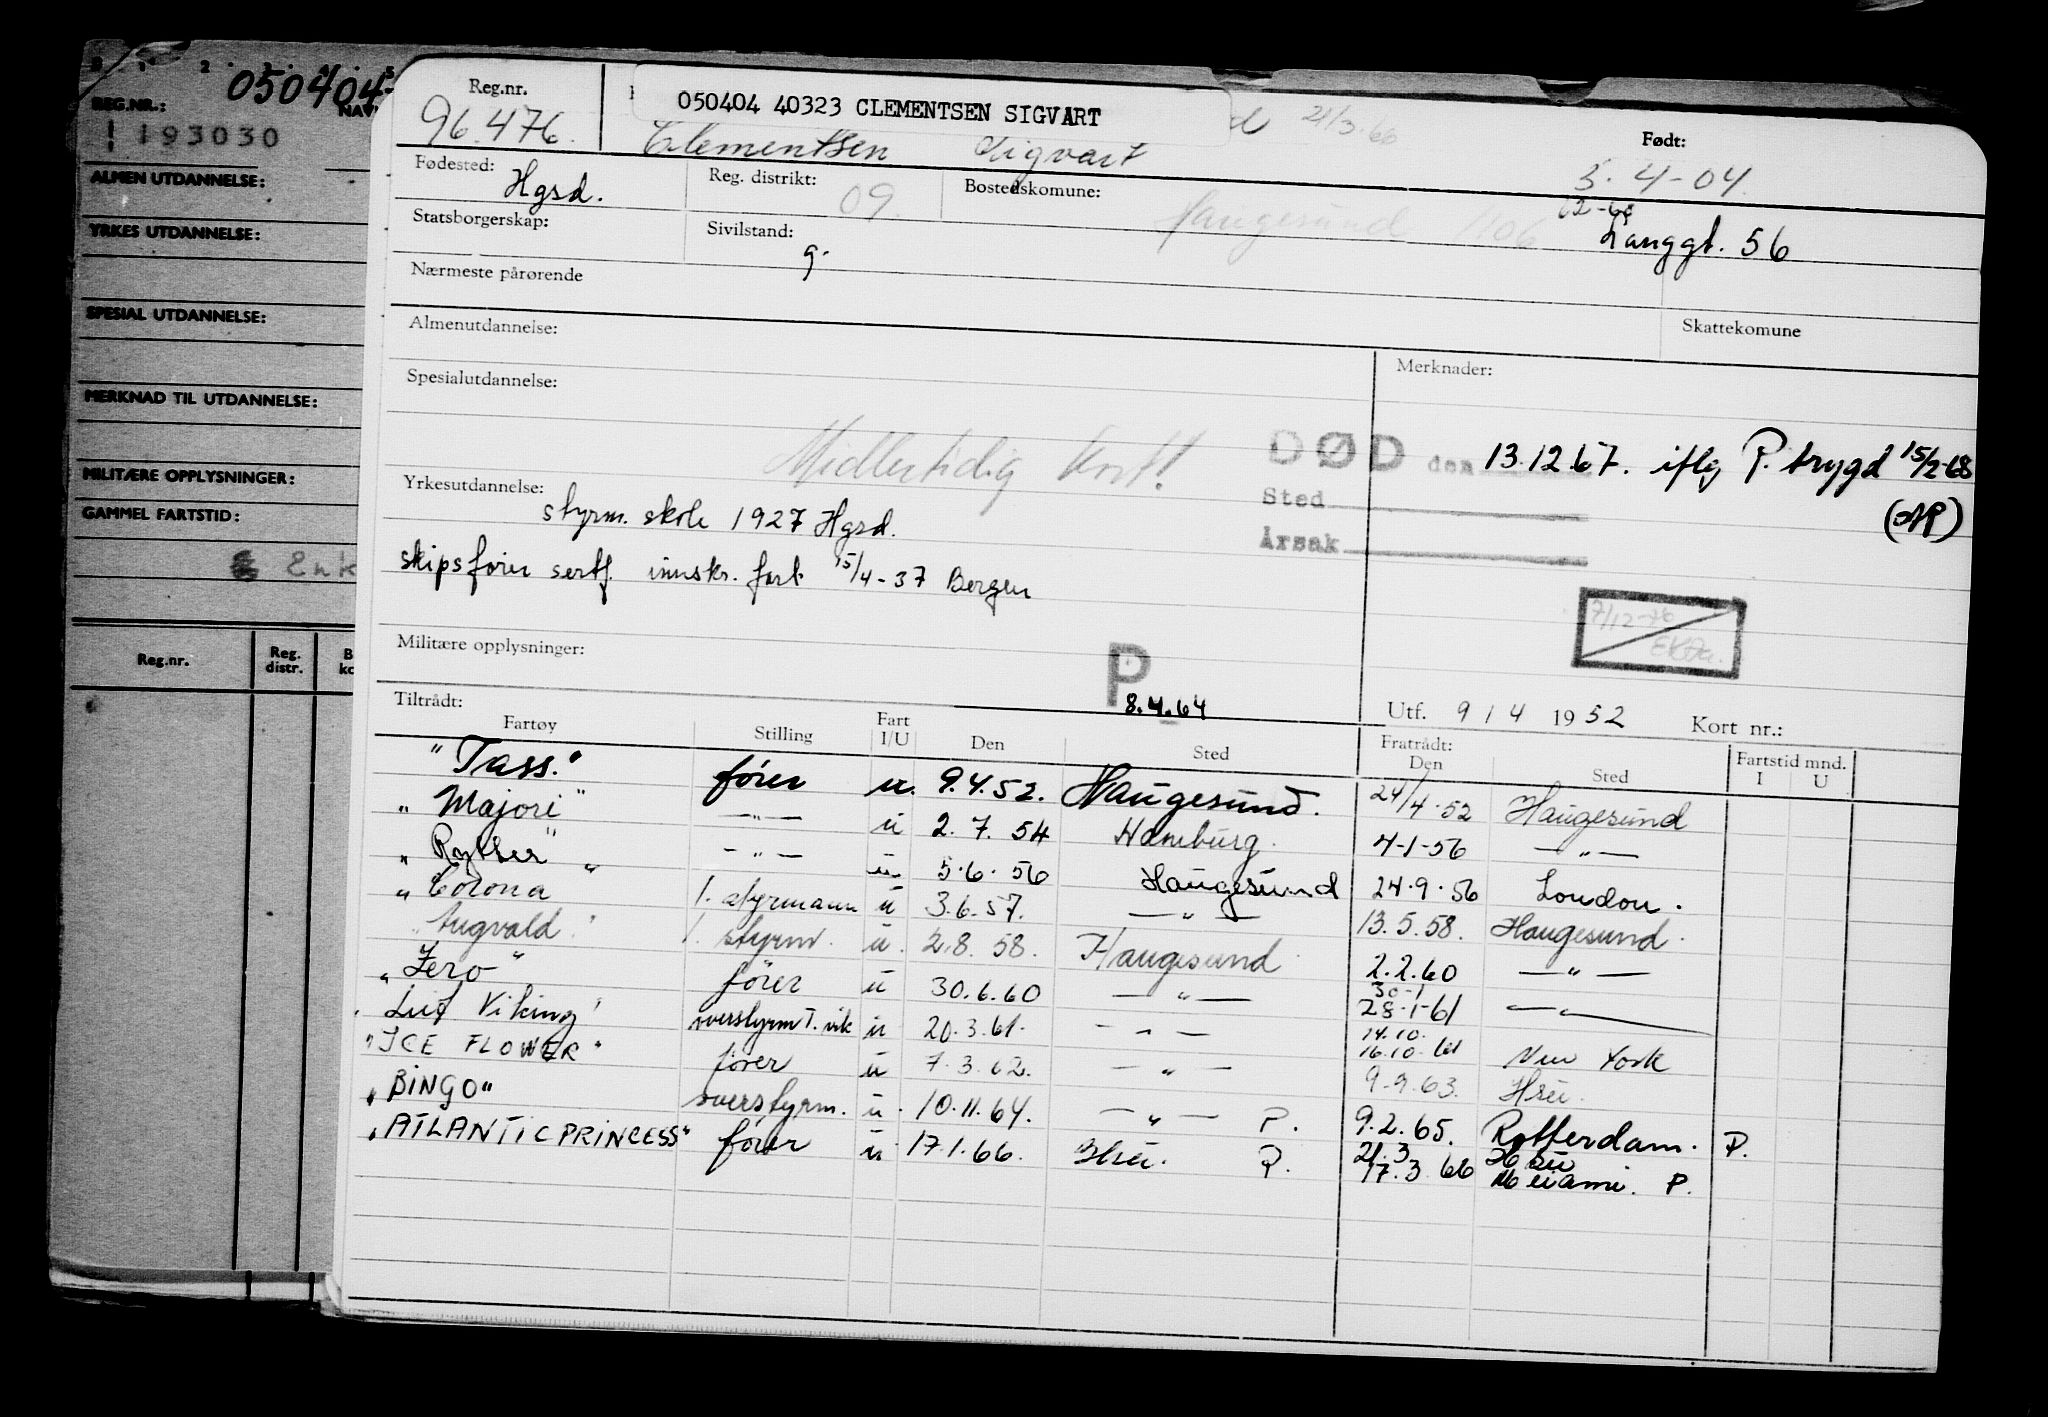 050404
REG.NR.:
193030
ALMEN UTDANNELSE:
YRKES UTDANNELSE:
SPESIAL UTDANNELSE:
MERKNAD TIL UTDANNELSE:
MILITÆRE OPPLYSNINGER:
GAMMEL FARTSTID:
Enk
Reg.nr. Reg. distr.
Reg.nr. 96.476.
050404 40323 CLEMENTSEN SIGVART
Clementsen Sigvart 21/3.66
Født: 5.4-04
Fødested: Hgsd. Reg. distrikt: 09. Bostedskomune: Haugesund 1106
Langgt. 56
Statsborgerskap: Sivilstand: g.
Nærmeste pårørende
Almenutdannelse: Skattekomune
Spesialutdannelse: Merknader:
Midlertidig kort!
DØD den 13.12.67. iflg P. trygd 15/2-68
Sted
Årsak
Yrkesutdannelse: styrm. skole 1927 Hgsd.
skipsfører sertf. innskr. fart 15/4-37 Bergen
Militære opplysninger:
P 8.4.64
Utf. 9/4 1952 Kort nr.:
Tiltrådt: Fratrådt:
Fartøy Stilling Fart I/U Den Sted Den Sted Fartstid mnd. I U
"Tass." fører u. 9.4.52. Haugesund. 24/4.52 Haugesund
"Majori" —"— u 2.7.54 Hamburg. 4-1-56 —"—
—"— u 5.6.56 Haugesund 24.9.56 London.
"Corona" 1. styrmann u 3.6.57. —"— 13.5.58. Haugesund.
1. styrm. u. 2.8.58. Haugesund 2.2.60 —"—
"Zero" fører u 30.6.60 —"— 30-1 28-1-61 —"—
Viking" u 20.3.61. —"— 14.10. 16.10.61 New York
"ICE FLOWER" fører u 7.3.62. —"— 9.9.63.
"BINGO" overstyrm. u. 10.11.64. —"— P. 9.2.65. Rotterdam. P.
"ATLANTIC PRINCESS" fører u 17.1.66. P. 21.3 17.3.66 Miami. P.